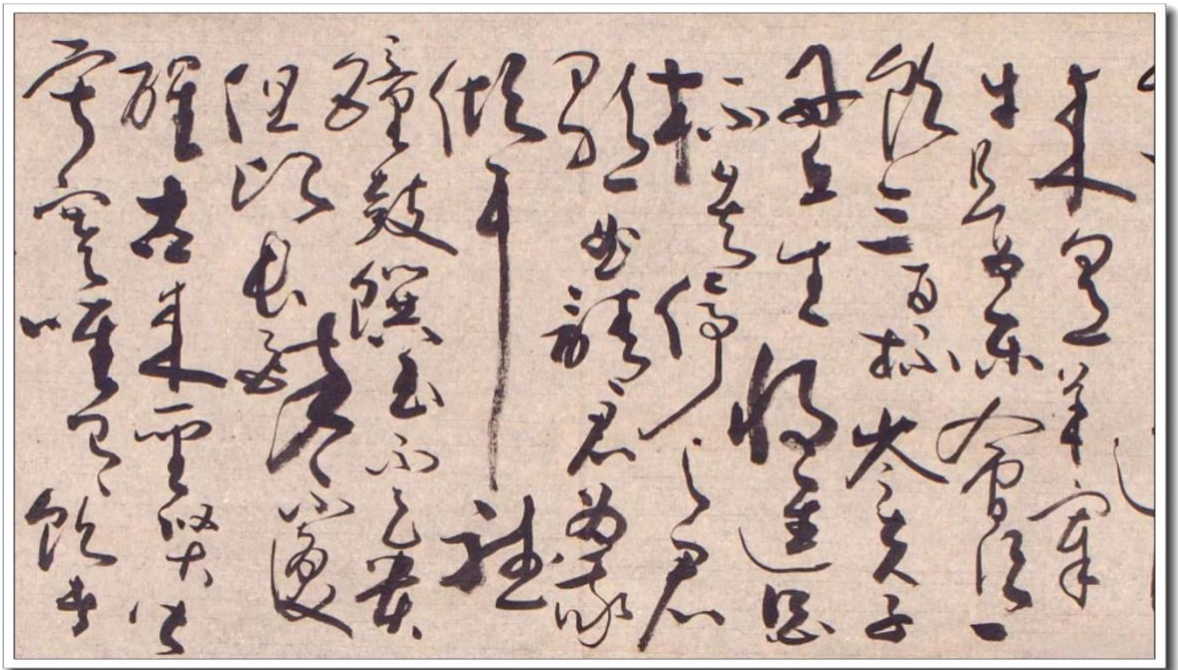 来烹羊宰
牛且為樂會須一
飲三百杯岑夫子
丹丘生將進酒
杯莫停與君
歌一曲請君為我
傾耳聽
鐘鼓饌玉不足貴
但願長醉不復
醒古來聖賢皆
寂寞唯有飲者